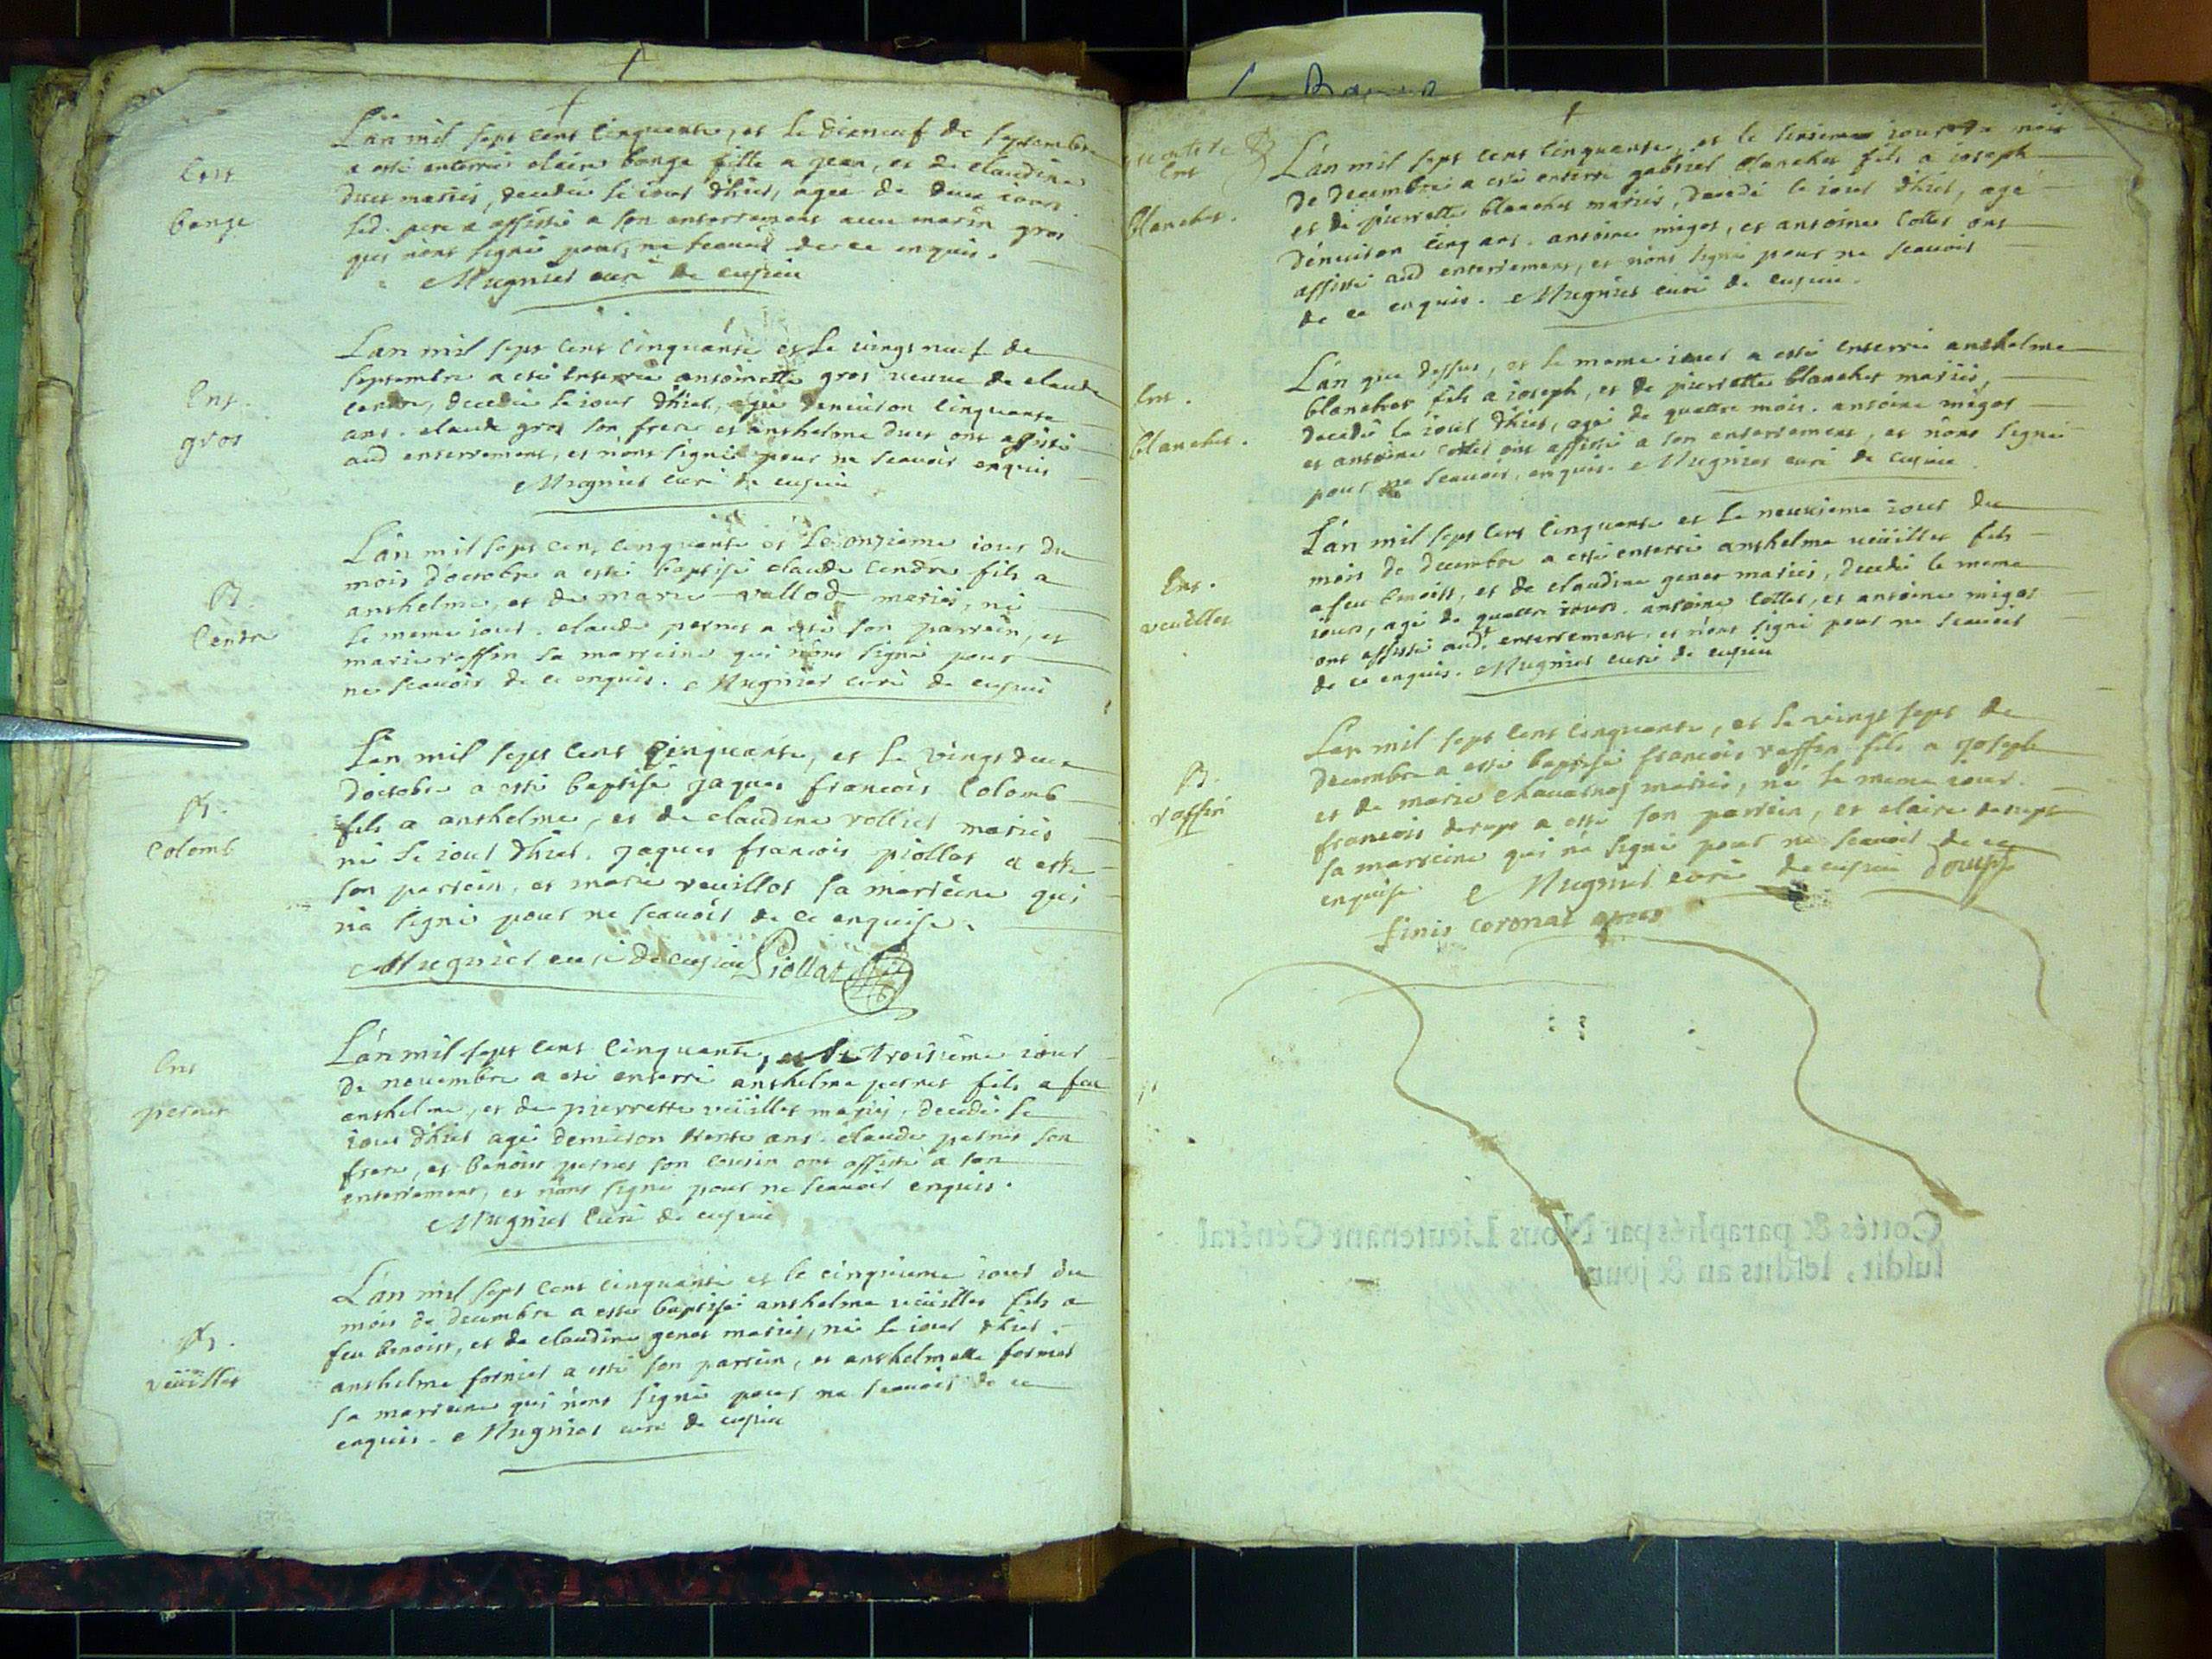 L'an mil sept cent cinquante, et le dixneuf de septembre
a esté enterrée claire bonge fille a jean, et de claudine
duet mariés, decedée le iour d'hier, agée de deux iours.
led. pere a assisté a son enterrement avec marin gros
qui n'ont signé pour ne scavoir de ce enquis.
Mugnier curé de cuzieu
Ent
bonge
L'an mil sept cent cinquante et le vingt neuf de
septembre a esté enterrée antoinette gros veuve de claude
cendre, decedée le iour d'hier, agée d'environ cinquante
ans. claude gros son frere et anthelme duet ont assisté
aud enterrement, et n'ont signé pour ne scavoir enquis
Mugnier curé de cuzieu
Ent.
gros
L'an mil sept cent cinquante et le onzieme iour du
mois d'octobre a esté baptisé claude cendre fils a
anthelme, et de marie vallod mariés, né
le meme iour. claude pernet a esté son parrein, et
marie raffin sa marreine qui n'ont signé pour
ne scavoir de ce enquis. Mugnier curé de cuzieu
B.
Cendre
L'an mil sept cent cinquante, et le vingt deux
d'octobre a esté baptisé jaques francois Colomb
fils a anthelme, et de claudine rollier mariés
né le iour d'hier. jaques francois piollat a esté
son parrein, et marie veuillet sa marreine qui
n'a signé pour ne scavoir de ce enquise.
Mugnier curé de cuzieu Piollat
B.
Colomb
L'an mil sept cent cinquante, et le troisieme iour
de novembre a esté enterré anthelme pernet fils a feu
anthelme, et de pierrette veüillet mariés, decedé le
iour d'hier agé d'environ trente ans. claude pernet son
frere, et benoist pernet son cousin ont assisté a son
enterrement, et n'ont signé pour ne scavoir enquis.
Mugnier curé de cuzieu
Ent
pernet
L'an mil sept cent cinquante et le cinquieme iour du
mois de decembre a esté baptisé anthelme veüillet fils a
feu benoist, et de claudine genet mariés, né le iour d'hier.
anthelme fornier a esté son parrein, et anthelmette fornier
sa marreine qui n'ont signé pour ne scavoir de ce
enquis. Mugnier curé de cuzieu
B.
veüillet
L'an mil sept cent cinquante, et le sixieme iour du mois
de decembre a esté enterré gabriel blanchet fils a ioseph
et de pierrette blanchet mariés, decedé le iour d'hier, agé
d'environ cinq ans. antoine miget, et antoine collet ont
assisté aud enterrement, et n'ont signé pour ne scavoir
de ce enquis. Mugnier curé de cuzieu.
Ent
blanchet.
L'an que dessus, et le meme iour a esté enterré anthelme
blanchet fils a ioseph, et de pierrette blanchet mariés,
decedé le iour d'hier, agé de quattre mois. antoine miget
et antoine collet ont assisté a son enterrement, et n'ont signé
pour ne scavoir, enquis. Mugnier curé de cuzieu
Ent.
blanchet.
L'an mil sept cent cinquante et le neuvieme iour du
mois de decembre a esté enterré anthelme veüillet fils
a feu benoist, et de claudine genet mariés, decedé le meme
iour, agé de quattre iours. antoine collet, et antoine miget
ont assisté aud. enterrement, et n'ont signé pour ne scavoir
de ce enquis. Mugnier curé de cuzieu
Ent.
veüillet
L'an mil sept cent cinquante, et le vingt sept de
decembre a esté baptisé francois raffin fils a joseph
et de marie chavarnet mariés, né le meme iour.
francois derupt a esté son parrein, et claire derupt
sa marreine qui n'a signé pour ne scavoir de ce
enquise. Mugnier curé de cuzieu
finis coronat opus
B.
raffin
Cottés & paraphés par Nous Lieutenant Général
susdit, lesdits an & jour